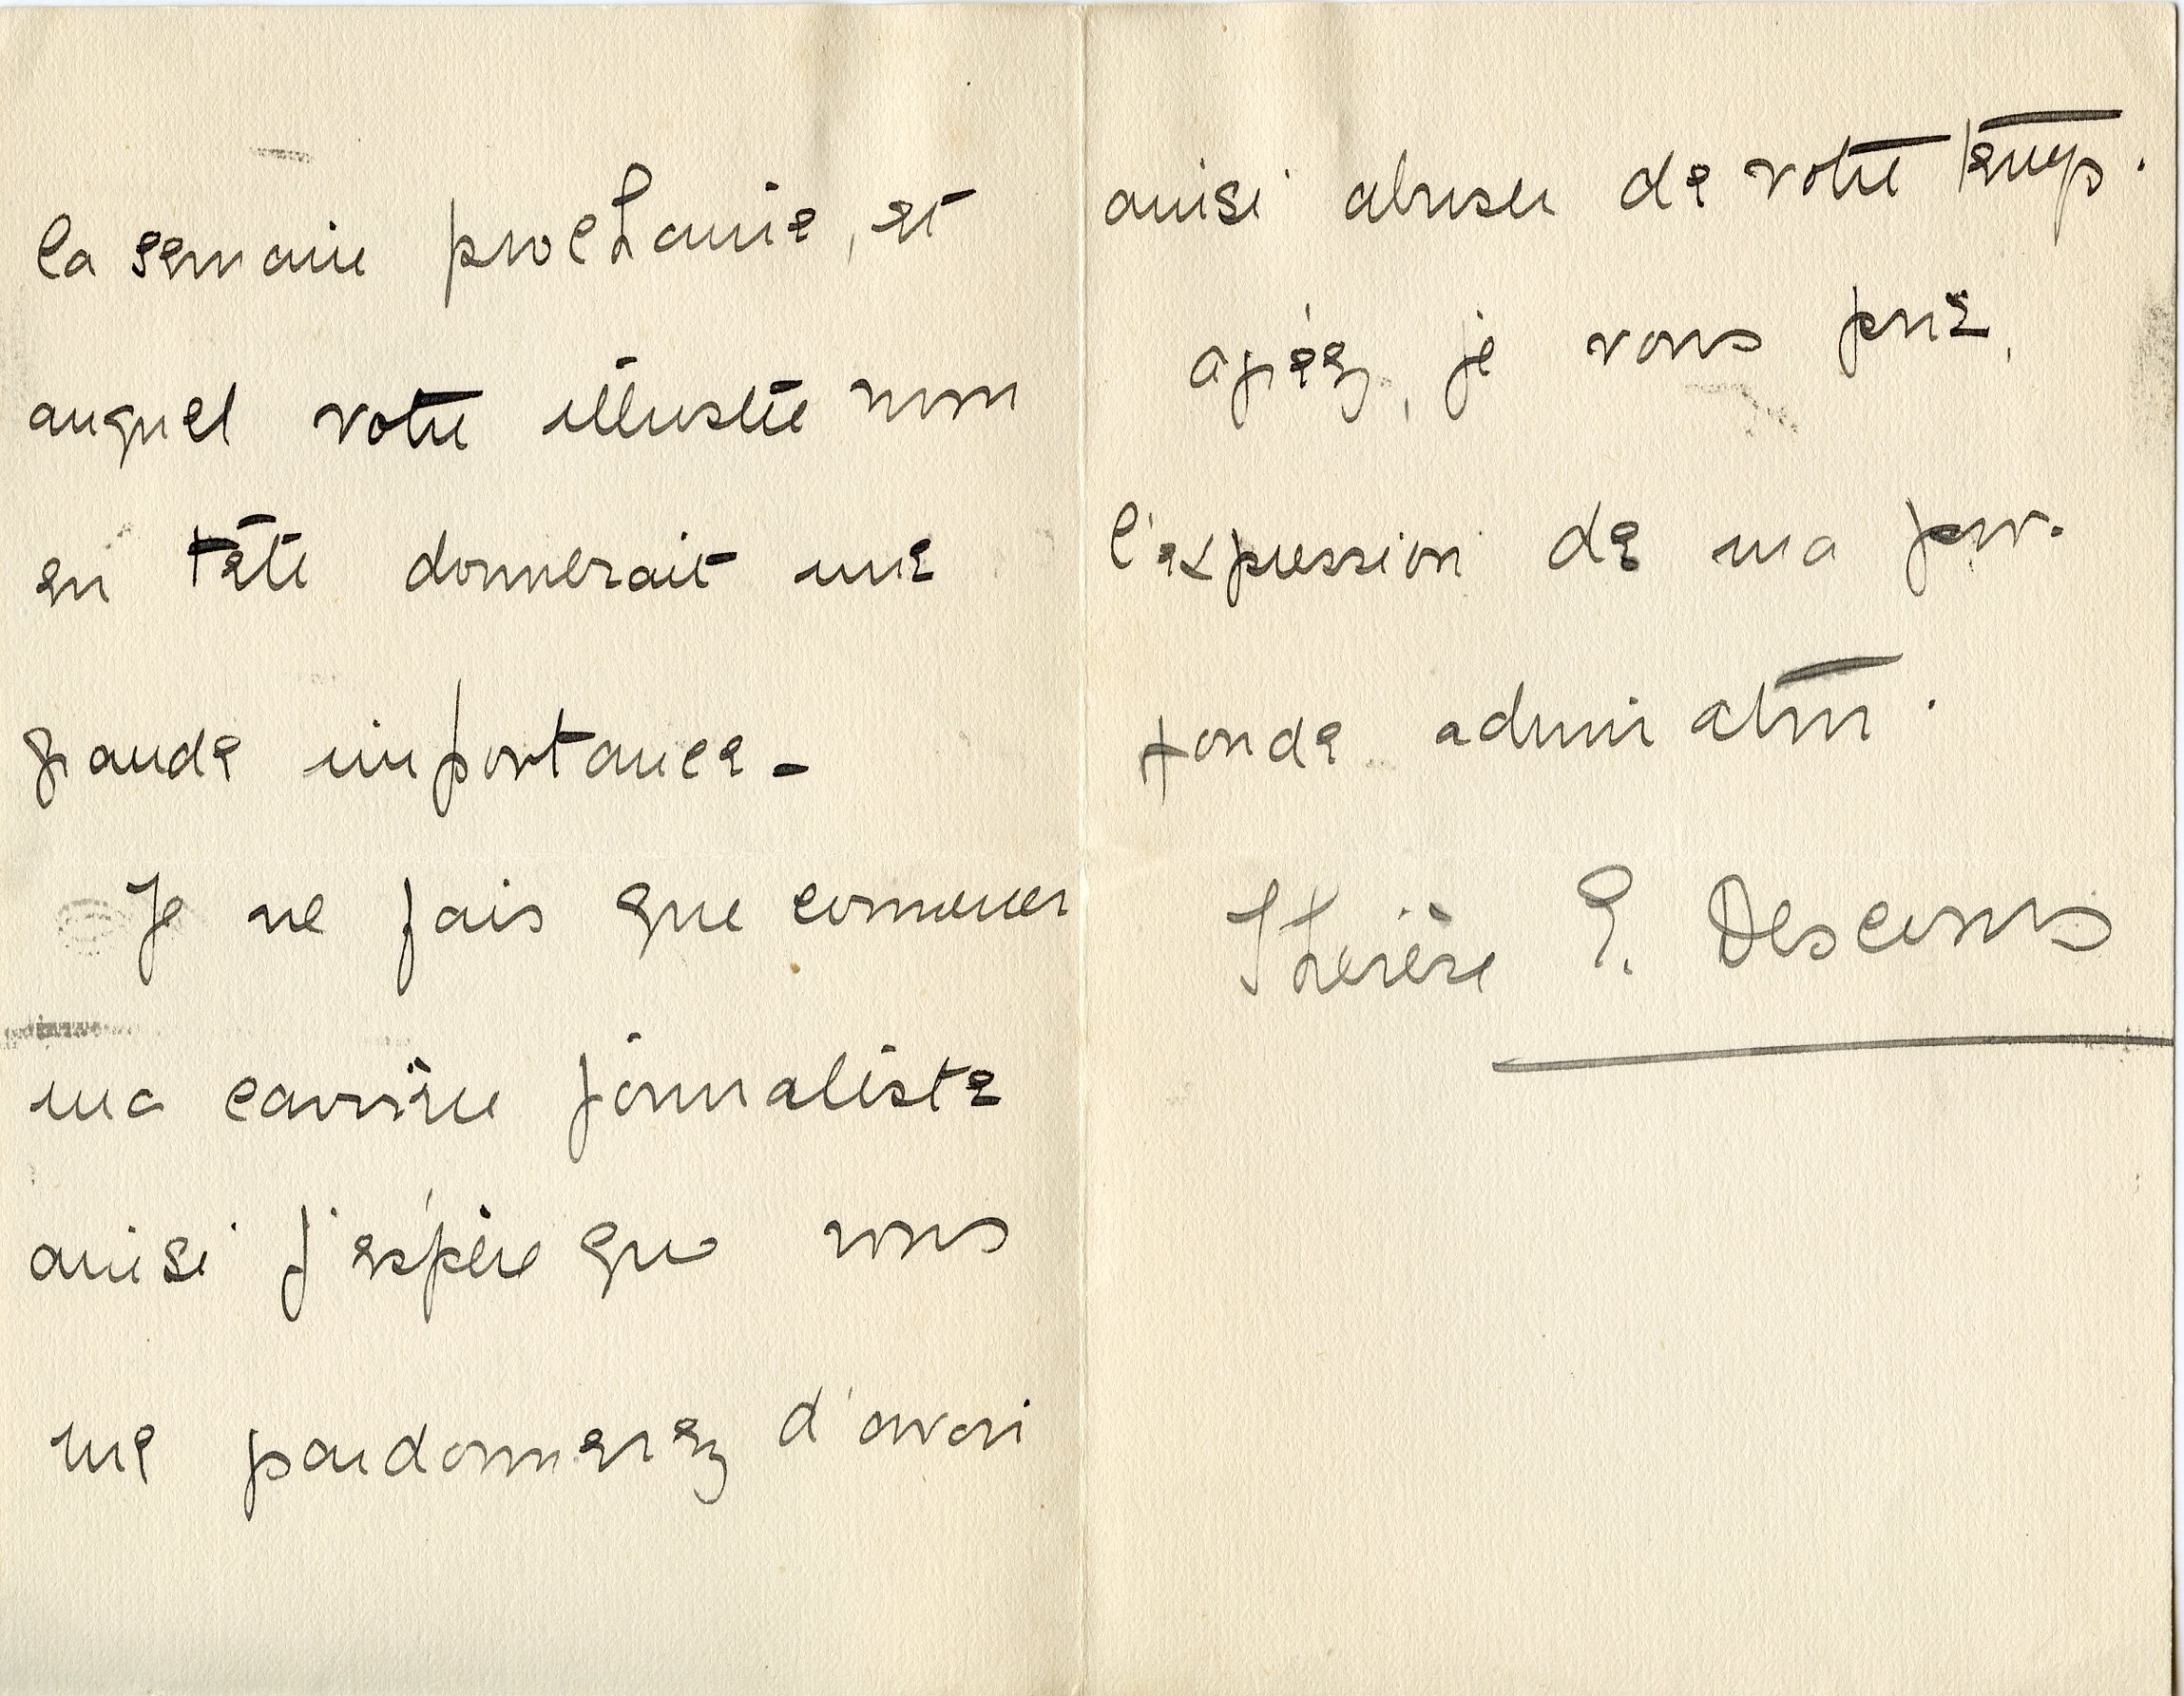 la semaine prochaine, et
auquel votre illustre nom
en tête donnerait une
grande importance -
Je ne fais que commencer
ma carrière journaliste
ainsi j'espère que vous
me pardonnerez d'avoir
ainsi abuser de votre temps.
agréez, je vous prie,
l'expression de ma pro-
fonde admiration.
Thérèse E. Descours